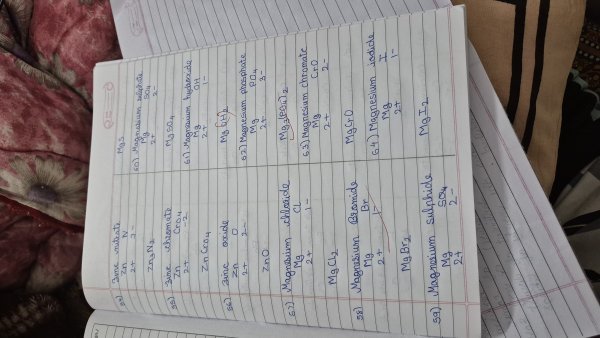 54) Zinc nitride
Zn N
2+ 3-
Zn3N2
55) Zinc chromate
Zn CrO4
2+ -2
ZnCrO4
56) Zinc oxide
Zn O
2+ 2-
ZnO
57) Magnesium chloride
Mg Cl
2+ 1-
MgCl2
58) Magnesium Bromide
Mg Br
2+ 1-
MgBr2
59) Magnesium sulphide
Mg SO4
2+ 2-
MgS
60) Magnesium sulphate
Mg SO4
2+ 2-
MgSO4
61) Magnesium hydroxide
Mg OH
2+ 1-
Mg(OH)2
62) Magnesium phosphate
Mg PO4
2+ 3-
Mg3(PO4)2
63) Magnesium chromate
Mg CrO
2+ 2-
MgCrO
64) Magnesium iodide
Mg I
2+ 1-
MgI2